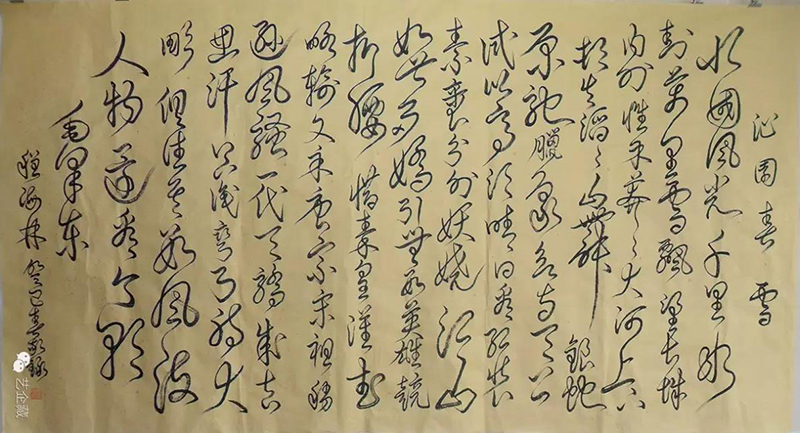 沁园春 雪
北國风光千里冰
封萬里雪飘望长城
内外惟余莽々大河上下
顿失滔々山舞銀蛇
原驰臘象欲与天公
试比高须晴日看红装
素裹分外妖娆江山
如此多嬌引無数英雄競
折腰惜秦皇漢武
略输文采唐宗宋祖稍
逊风骚一代天骄成吉
思汗只识弯弓射大
雕俱往矣数风流
人物还看今朝
毛泽东
海林癸巳春敬録
艺企藏